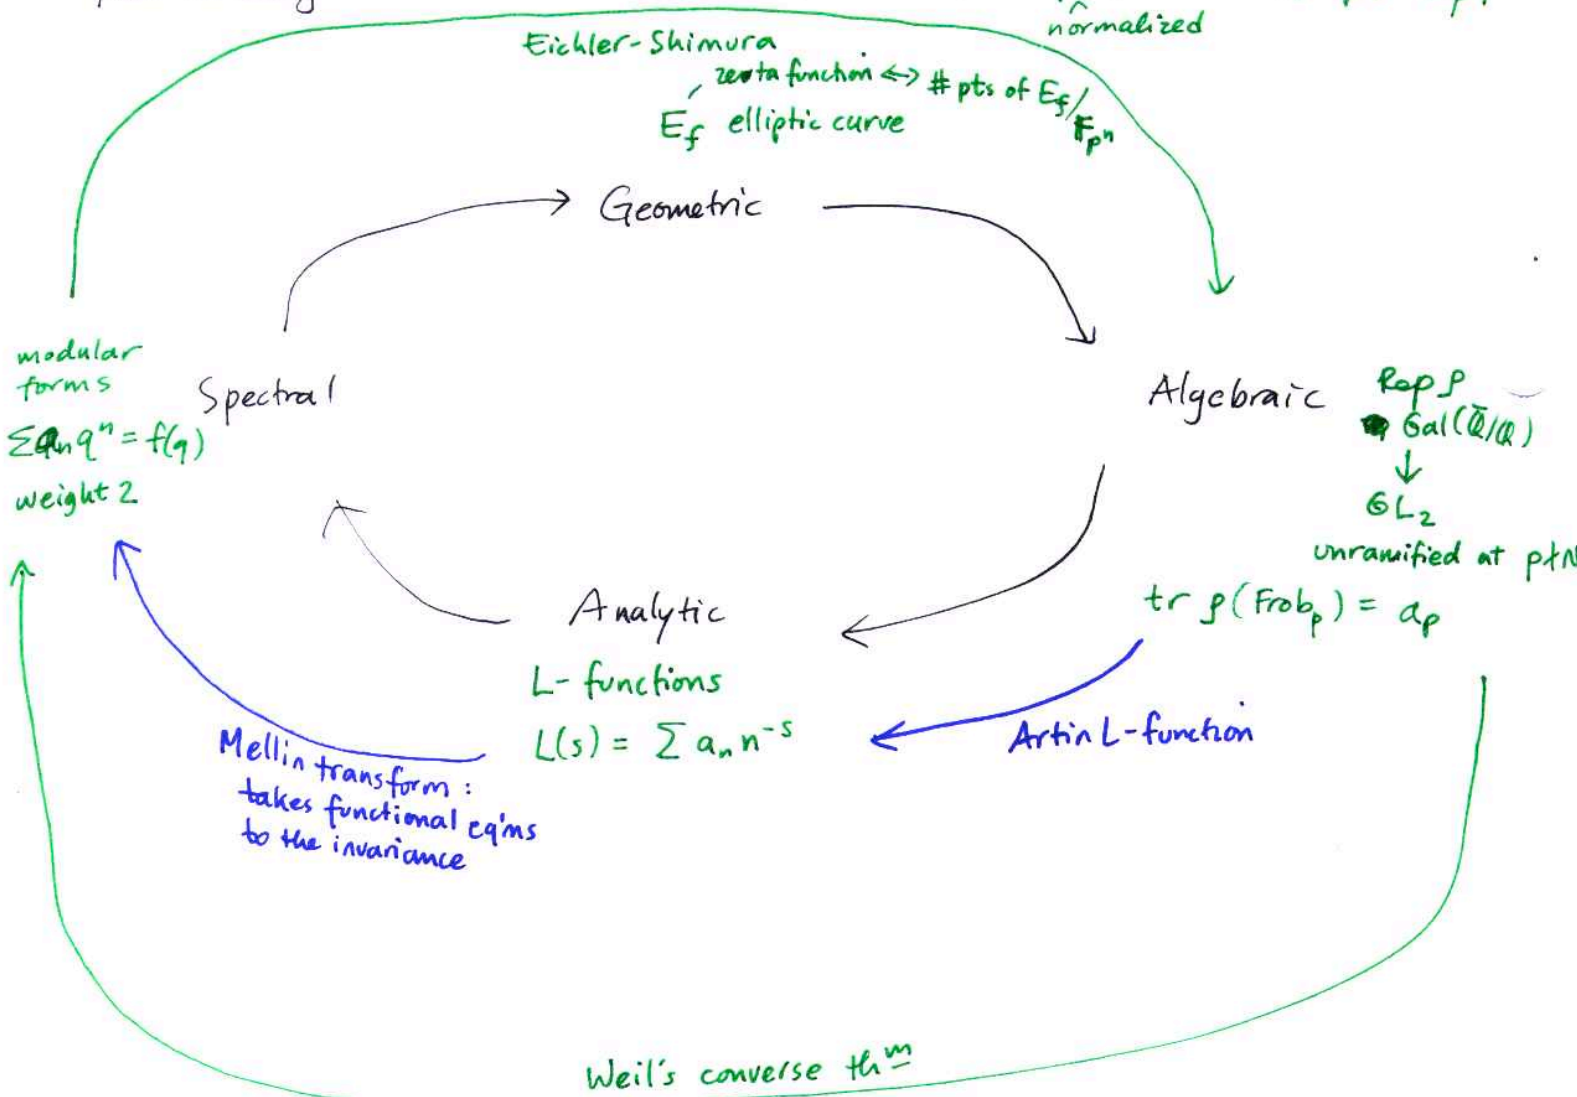 normalized
Eichler-Shimura
zeta function ↔ # pts of E_f/F_{p^n}
E_f elliptic curve
Geometric
modular
forms
Spectral
Σa_n q^n = f(q)
weight 2
Algebraic
Rep ρ
Gal(Q̄/Q)
↓
GL_2
unramified at p∤N
tr ρ(Frob_p) = a_p
Analytic
L-functions
L(s) = Σ a_n n^{-s}
Artin L-function
Mellin transform:
takes functional eq'ns
to the invariance
Weil's converse th^m